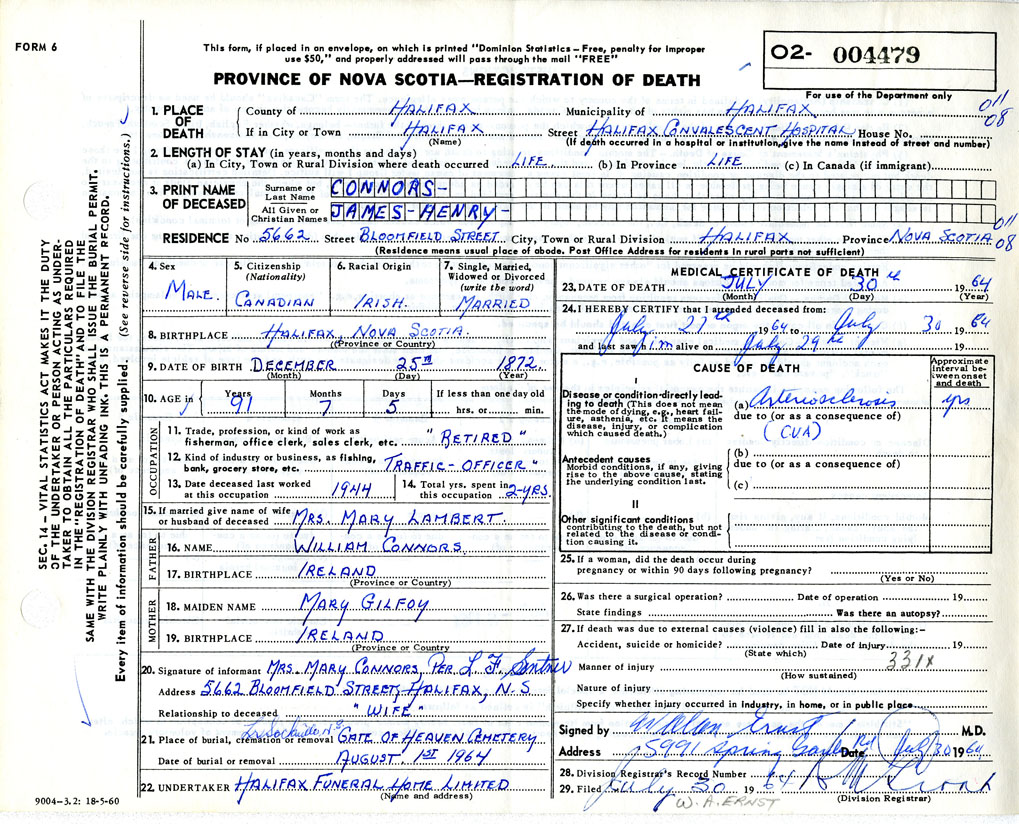 FORM 6
This form, if placed in an envelope, on which is printed "Dominion Statistics – Free, penalty for improper
use $50," and properly addressed will pass through the mail "FREE"
PROVINCE OF NOVA SCOTIA—REGISTRATION OF DEATH
O2- 004479
For use of the Department only
011
08
1. PLACE OF DEATH
County of HALIFAX Municipality of HALIFAX
If in City or Town HALIFAX Street HALIFAX CONVALESCENT HOSPITAL House No.
(Name) (If death occurred in a hospital or institution, give the name instead of street and number)
2. LENGTH OF STAY (in years, months and days)
(a) In City, Town or Rural Division where death occurred LIFE (b) In Province LIFE (c) In Canada (if immigrant)
3. PRINT NAME OF DECEASED
Surname or Last Name CONNORS-
All Given or Christian Names JAMES-HENRY-
011
08
RESIDENCE No 5662 Street BLOOMFIELD STREET City, Town or Rural Division HALIFAX Province NOVA SCOTIA
(Residence means usual place of abode. Post Office Address for residents in rural parts not sufficient)
4. Sex MALE.
5. Citizenship (Nationality) CANADIAN
6. Racial Origin IRISH.
7. Single, Married, Widowed or Divorced (write the word) MARRIED
8. BIRTHPLACE HALIFAX, NOVA SCOTIA.
(Province or Country)
9. DATE OF BIRTH DECEMBER 25TH 1872.
(Month) (Day) (Year)
10. AGE in Years 91 Months 7 Days 5 If less than one day old hrs. or min.
OCCUPATION
11. Trade, profession, or kind of work as
fisherman, office clerk, sales clerk, etc. "RETIRED"
12. Kind of industry or business, as fishing,
bank, grocery store, etc. TRAFFIC-OFFICER"
13. Date deceased last worked at this occupation 1944
14. Total yrs. spent in this occupation 2-YRS.
15. If married give name of wife
or husband of deceased MRS. MARY LAMBERT.
FATHER
16. NAME WILLIAM CONNORS.
17. BIRTHPLACE IRELAND
(Province or Country)
MOTHER
18. MAIDEN NAME MARY GILFOY
19. BIRTHPLACE IRELAND
(Province or Country)
20. Signature of informant MRS. MARY CONNORS, PER L. F.
Address 5662 BLOOMFIELD STREET, HALIFAX, N.S
Relationship to deceased "WIFE"
21. Place of burial, cremation or removal GATE OF HEAVEN CEMETERY
Date of burial or removal AUGUST. 1ST 1964
22. UNDERTAKER HALIFAX FUNERAL HOME LIMITED
(Name and address)
9004-3.2: 18-5-60
MEDICAL CERTIFICATE OF DEATH
23. DATE OF DEATH JULY 30th 1964
(Month) (Day) (Year)
24. I HEREBY CERTIFY that I attended deceased from:
July 27th 1964 to July 30 1964
and last saw him alive on July 29th 19
CAUSE OF DEATH
Approximate interval between onset and death
I
Disease or condition directly leading to death (This does not mean the mode of dying, e.g., heart failure, asthenia, etc. It means the disease, injury, or complication which caused death.)
(a) Arteriosclerosis yrs
due to (or as a consequence of)
(CVA)
Antecedent causes
Morbid conditions, if any, giving rise to the above cause, stating the underlying condition last.
(b)
due to (or as a consequence of)
(c)
II
Other significant conditions
contributing to the death, but not related to the disease or condition causing it.
25. If a woman, did the death occur during
pregnancy or within 90 days following pregnancy?
(Yes or No)
26. Was there a surgical operation? Date of operation 19
State findings Was there an autopsy?
27. If death was due to external causes (violence) fill in also the following:–
Accident, suicide or homicide? Date of injury 19
(State which) 331X
Manner of injury
(How sustained)
Nature of injury
Specify whether injury occurred in industry, in home, or in public place
Signed by Ernst M.D.
Address 5991 Spring Garden Rd Date July 30 1964
28. Division Registrar's Record Number
29. Filed July 30 1964
W. A. ERNST
(Division Registrar)
SEC. 14 – VITAL STATISTICS ACT MAKES IT THE DUTY
OF THE UNDERTAKER OR PERSON ACTING AS UNDER-
TAKER TO OBTAIN ALL THE PARTICULARS REQUIRED
IN THE "REGISTRATION OF DEATH" AND TO FILE THE
SAME WITH THE DIVISION REGISTRAR WHO SHALL ISSUE THE BURIAL PERMIT.
WRITE PLAINLY WITH UNFADING INK. THIS IS A PERMANENT RECORD.
Every item of information should be carefully supplied. (See reverse side for instructions.)